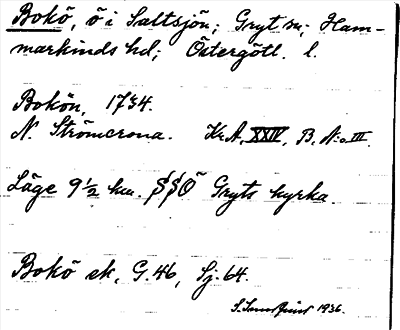 Bokö, ö i Saltsjön; Gryt sn; Ham-
markinds hd; Östergötl. l.
Bokön, 1734.
N. Strömcrona. Kr.A. XXIV, B, N:o III.
Läge 9 1/2 km. SSO Gryts kyrka.
Bokö ek, G. 46, Sj. 64.
1936.